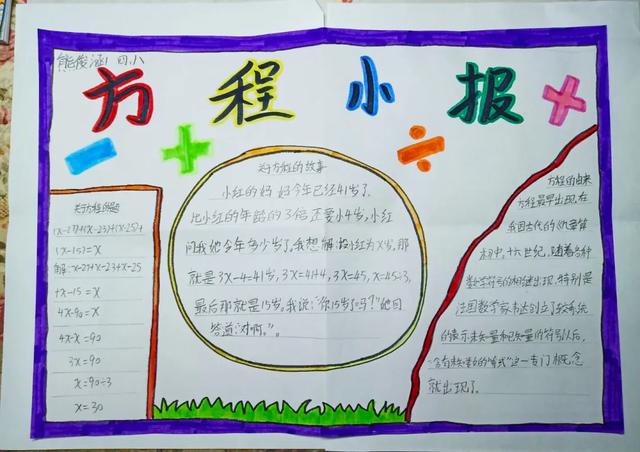 熊俊涵 四小
方程小报
关于方程的题
(x-27)+(x-23)+(x-25)+
(x-15)=x
解:x-27+x-23+x-25
+x-15=x
4x-90=x
4x-x=90
3x=90
x=90÷3
x=30
关于方程的故事
小红的妈妈今年已经41岁了.
比小红的年龄的3倍还要小4岁,小红
问我她今年多少岁了,我想解:设小红为X岁.那
就是3x-4=41岁,3x=41+4,3x=45,x=45÷3,
最后那就是15岁.我说:“你15岁了吗?”她回
答道:“对啊。”。
方程的由来
方程最早出现在
我国古代的《九章算
术》中.十六世纪,随着各种
数学符号的相继出现,特别是
法国数学家韦达创立了较系统
的表示未知量和已知量的符号以后,
“含有未知数的等式”这一专门概念
就出现了.